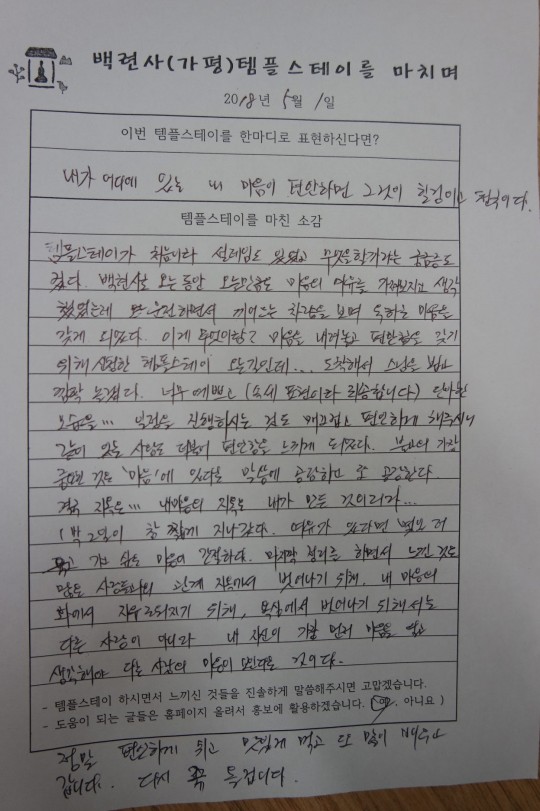 백련사(가평)템플스테이를 마치며
2018년 5월 1일
이번 템플스테이를 한마디로 표현하신다면?
내가 어디에 있는 내 마음이 편안하면 그것이 힐링이고 천국이다.
템플스테이를 마친 소감
템플스테이가 처음이라 설레임도 있었고 무엇을할까라는 궁금증도
컸다. 백련사로 오는동안 오늘만큼은 마음의 여유를 가져보자고 생각
했었는데 운전하면서 끼어드는 차량을 보며 욕하는 마음을
갖게 되었다. 이게 무엇이람? 마음을 내려놓고 편안함을 갖기
위해 신청한 템플스테이 오는길인데... 도착해서 스님을 뵙고
깜짝 놀랬다. 너무예쁘고 (속세 표현이라 죄송합니다) 단아한
모습을... 일정을 진행하시는 것도 매끄럽고 편안하게 해주시니
같이 있는 사람도 더불어 편안함을 느끼게 되었다. 불교의 가장
중요한 것은 '마음'에 있다는 말씀에 공감하고 또 공감한다.
결국 지옥은... 내마음의 지옥도 내가 만든 것이리라...
1박2일이 참 짧게 지나갔다. 여유가 있다면 더
가고 싶은 마음이 간절하다. 마지막 정리를 하면서 느낀 것은
많은 사람들과의 관계 지옥에서 벗어나기 위해, 내 마음의
화에서 자유로워지기 위해, 욕심에서 벗어나기 위해서는
다른 사람이 아니라 내 자신이 가장 먼저 마음을 열고
생각해야 다른 사람의 마음이 보인다는 것이다.
- 템플스테이 하시면서 느끼신 것들을 진솔하게 말씀해주시면 고맙겠습니다.
- 도움이 되는 글들은 홈페이지 올려서 홍보에 활용하겠습니다. (예, 아니요 )
정말 편안하게 쉬고 맛있게 먹고 또 많이 배우고
갑니다. 다시 꼭 들릴겁니다.